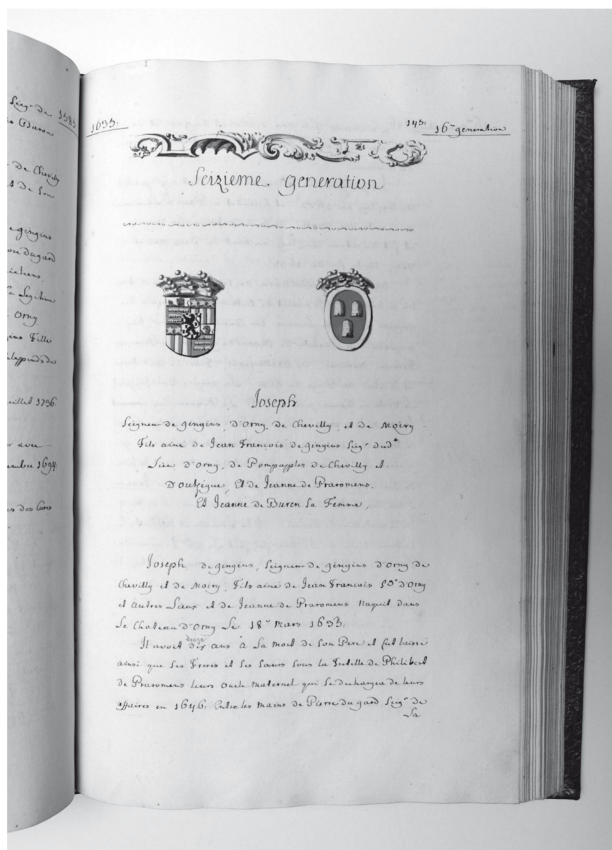 Seigr de 1585.
Buren
de Chevilly
et de Son
gingins
dugard
Orny
gins Fille
juillet 1736
1694
1633.
145.
16e generation
Seizieme generation
Joseph
Seigneur de gingins, d'Orny, de Chevilly, et de Moiry
Fils ainé de Jean Francois de gingins Seigr dudt
Lieu d'Orny, de Pompapples de Chevilly et
Et de Jeanne de Praromens.
Et Jeanne de Buren Sa Femme,
Joseph de gingins, Seigneur de gingins d'Orny de
Chevilly et de Moiry, Fils ainé de Jean Francois Sgr d'Orny
et autres Lieux et de Jeanne de Praromens naquit dans
Le Chateau d'Orny Le 18e Mars 1633.
Il avoit dix ans à La mort de Son Pere et fut laissé
ainsi que Ses Freres et Ses Sœurs Sous la Tutelle de Philibert
de Praromens leurs Oncle maternel qui Se dechargea de leurs
affaires en 1646. Entre les mains de Pierre dugard Seigr de
La